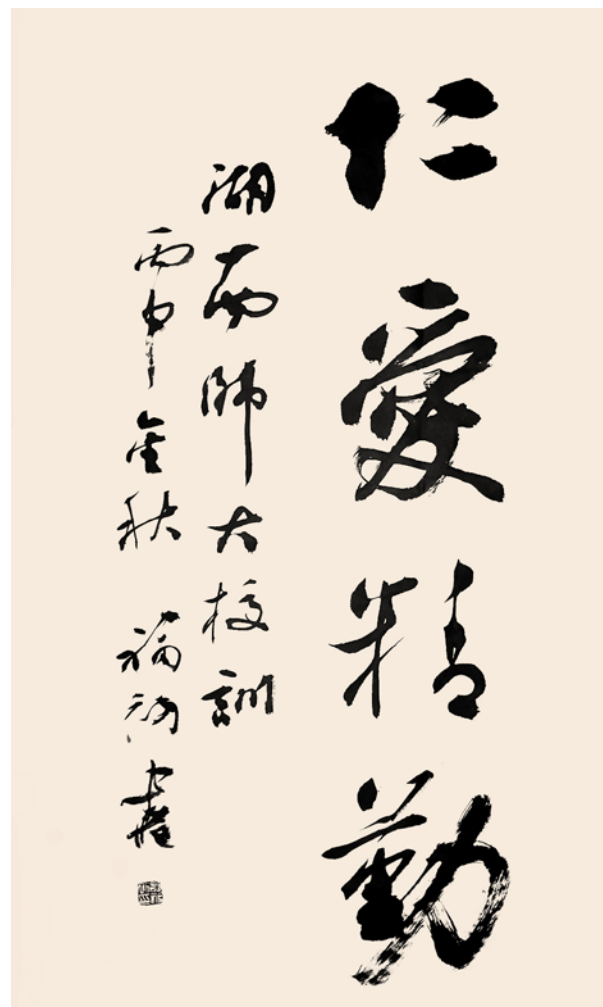 仁愛精勤
湖南師大校訓
丙申金秋 福 書